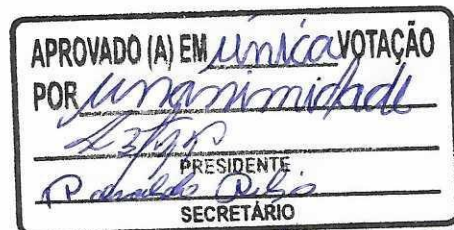 APROVADO (A) EM única VOTAÇÃO
POR unanimidade
PRESIDENTE
SECRETÁRIO